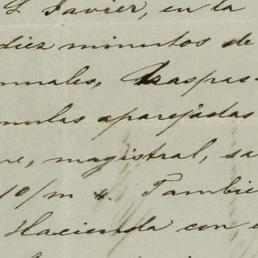 S. Javier, en la
diez minutos de
nuales, traspas
mulas aparejadas
re, magistral, sa
10/m
Tambie
Hacienda con